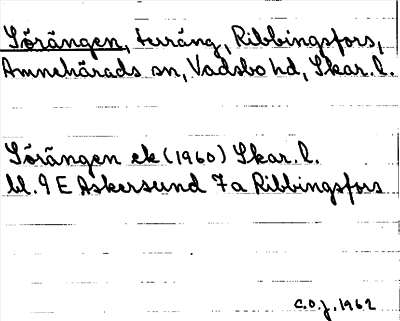 Sörängen, terräng, Ribbingsfors,
Amnehärads sn, Vadsbo hd, Skar. l.
Sörängen ek (1960) Skar. l.
bl. 9 E Askersund 7a Ribbingsfors
C.O.J. 1962